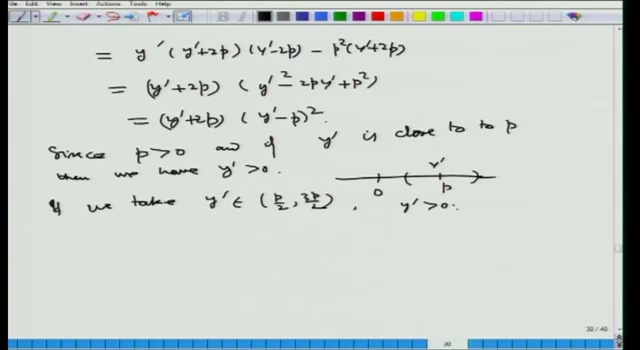 File Edit View Insert Actions Tools Help
= y' (y'+2p) (y'-2p) - p²(y'+2p)
= (y'+2p) (y'² - 2py' + p²)
= (y'+2p) (y'-p)².
Since p>0 and if y' is close to to p
then we have y'>0.
y'
0 p
If we take y' ∈ (p/2, 3p/2), y'>0.
30 / 40
30